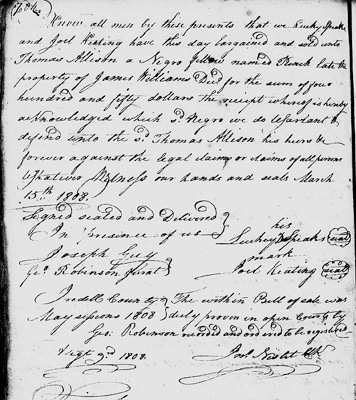 Know all men by these presents that we Luckey Speaks
and Joel Keating have this day bargained and sold unto
Thomas Allison a Negro fellow named named late the
property of James Williams Decd for the sum of four
hundred and fifty dollars the receipt whereof is hereby
acknowledged which sd. Negro we do warrant &
defend unto the sd. Thomas Allison his heirs &
forever against the legal claim or claims of all persons
whatever Witness our hands and seals March
15th 1808.
Signed sealed and Delivered
In Presence of us
his
Speaks seal
mark
Joseph Guy
Geo. Robinson Jurat
Joel Keating seal
Iredell County The within Bill of sale was
May sessions 1808 duly proven in open County by
Geo. Robinson recorded and ordered to be registered
Sept 9d 1808.